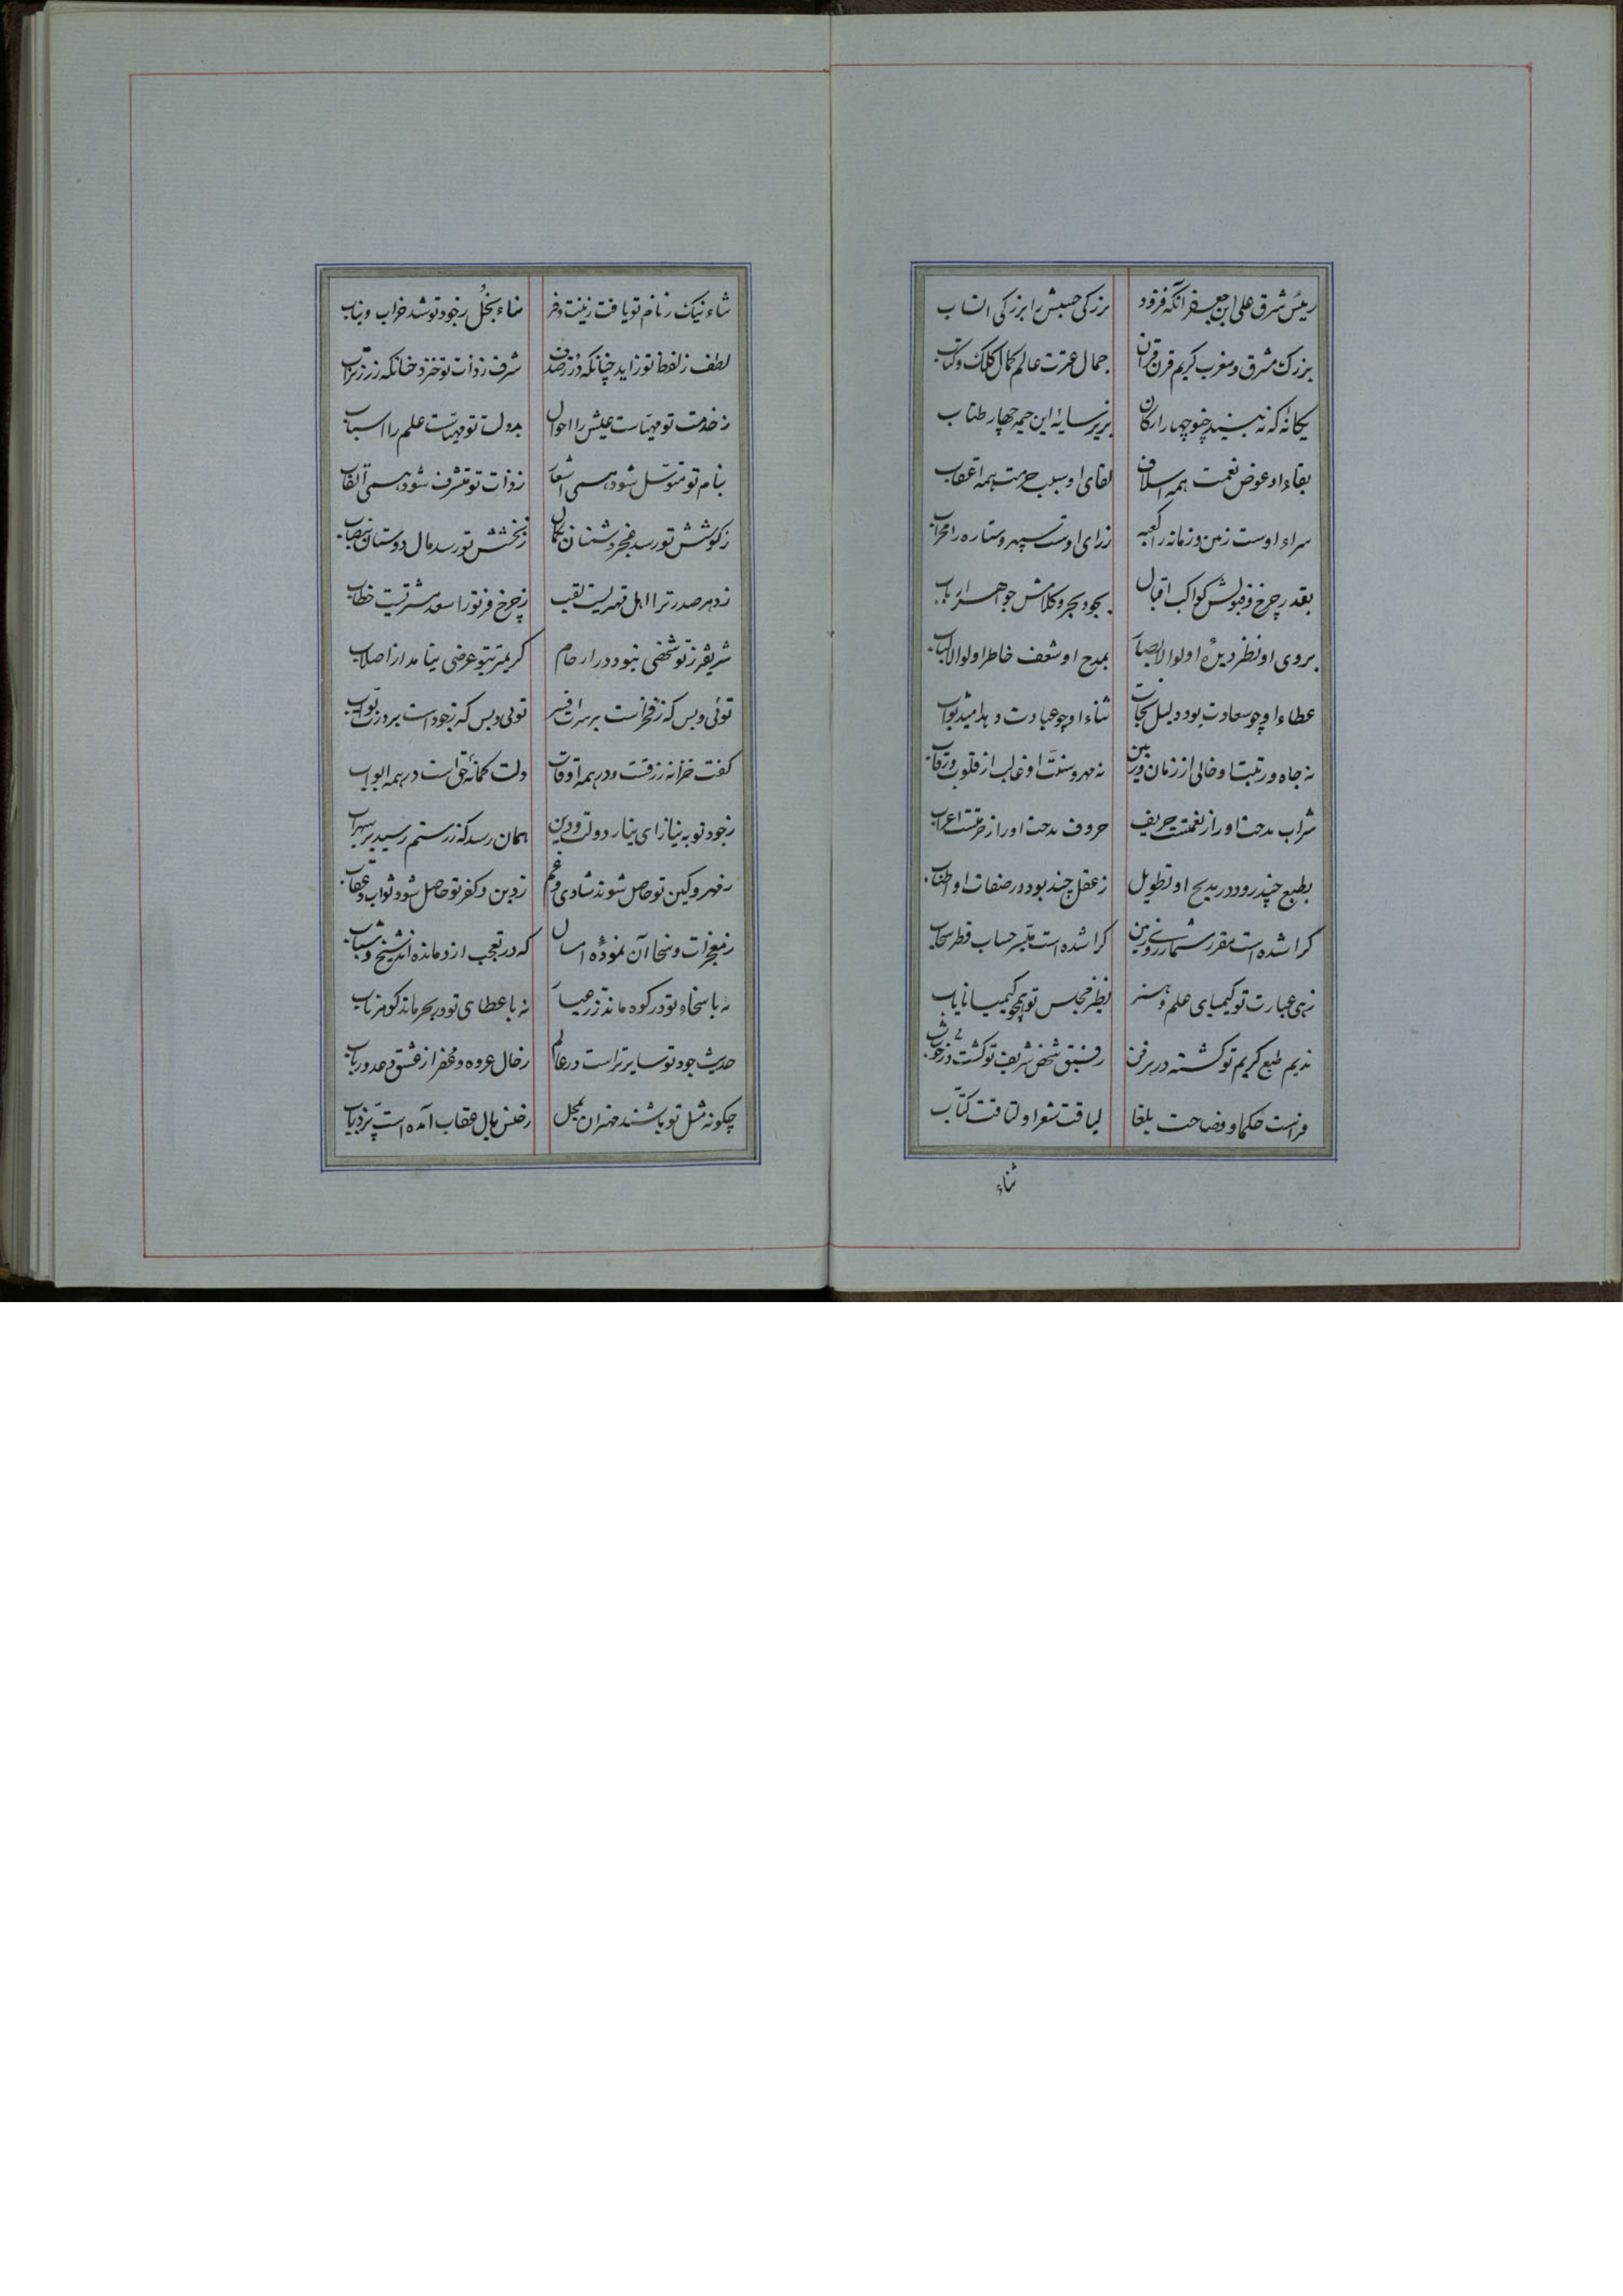 رئیس شرق علی ابن جعفر آنکه فزود بزرکی حسبش را بزرکی انساب
بزرک مشرق و مغرب کریم قرن قران جمال عترت عالم کمال کلک و کتاب
یکانهٔ که نه بیند چنو چهار ارکان بزیر سایهٔ این خیمه چهار طناب
بقاء او عوض نعمت همه اسلاف لقای او سبب حرمت همه اعقاب
سراء اوست زمین و زمانه را کعبه ز رای اوست سپهر و ستاره را محراب
بقدر چرخ و قبولش کواکب اقبال بجود بحر و کلامش جواهر ارباب
بروی او نظر دیدهٔ اولوا الابصار بمدح او شعف خاطر اولوا الالباب
عطاء او چو سعادت بود دلیل نجات ثناء او چو عبادت دهد امید ثواب
نه جاه و رتبت او خالی از زمان و زمین نه مهر و منت او غایب از قلوب و رقاب
شراب مدحت او را ز نغمتست حریف حروف مدحت او را ز حرمتست اعراب
بطبع چند رود در مدیح او تطویل ز عقل چند بود در صفات او اطناب
کرا شده است مقرر شمار ریک زمین کرا شده است میسر حساب قطر سحاب
زهی عبارت تو کیمیای علم و هنر نظیر مجلس تو همچو کیمیا نایاب
ندیم طبع کریم تو کشته در هر فن رفیق شخص شریف تو کشت در هر باب
فراست حکما و فصاحت بلغا لیاقت شعرا و لتاقت کتّاب
ثناء
ثناء نیک ز نام تو یافت زینت و فر بناء بخل ز جود تو شد خراب و یباب
لطف ز لفظ تو زاید چنانکه در ز صدف شرف ز ذات تو خیزد چنانکه زر ز تراب
ز خدمت تو مهیاست عیش را احوال بدولت تو مهیاست علم را اسباب
بنام تو متوسل شود همی اشعار ز ذات تو متشرف شود همی القاب
ز کوشش تو رسد خنجر دشمنان بکمال ز بخشش تو رسد مال دوستان بنصاب
ز دهر صدر ترا اهل قهر نیست لقب ز چرخ فر تو را سعد مشتریست خطاب
شریفتر ز تو شخصی نبود در ارحام کریمتر ز تو عرضی نیامد از اصلاب
توئی و بس که ز فخر است بر سرت افسر توئی و بس که ز جود است بر درت بوّاب
کفت خزانه رزقست در همه اوقات دلت کمانهٔ حق است در همه ابواب
ز جود تو به نیاز ای نیاز دولت و دین همان رسد که ز رستم رسید بر سهراب
ز مهر و کین تو حاصل شوند شادی و غم ز دین و کفر تو حاصل شود ثواب و عقاب
ز معجزات و سخا آن نمودهٔ امسال که در تعجب ازو مانده اند شیخ و شباب
نه با سخاء تو در کوه ماند زر عیار نه با عطای تو در بحر ماند کوهر ناب
حدیث جود تو سایرتر است در عالم ز حال عروه و عفرا ز عشق دعد و رباب
چکونه مثل تو باشند مهتران بمحل ز جنس بال عقاب آمده است پرّ ذباب